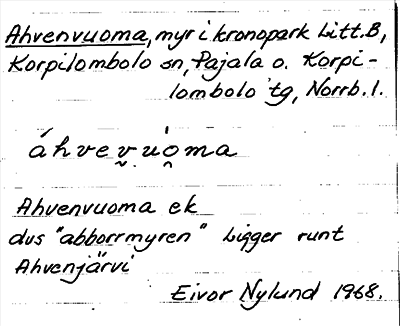 Ahvenvuoma, myr i kronopark Litt. B,
Korpilombolo sn, Pajala o. Korpi-
lombolo tg, Norrb. l.
áhvev̮u̯o̭ma
Ahvenvuoma ek
dvs "abborrmyren" Ligger runt
Ahvenjärvi
Eivor Nylund 1968.